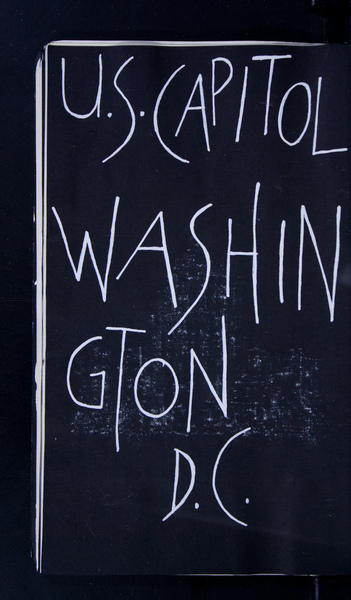 U.S. CAPITOL
WASHIN
GTON
D.C.